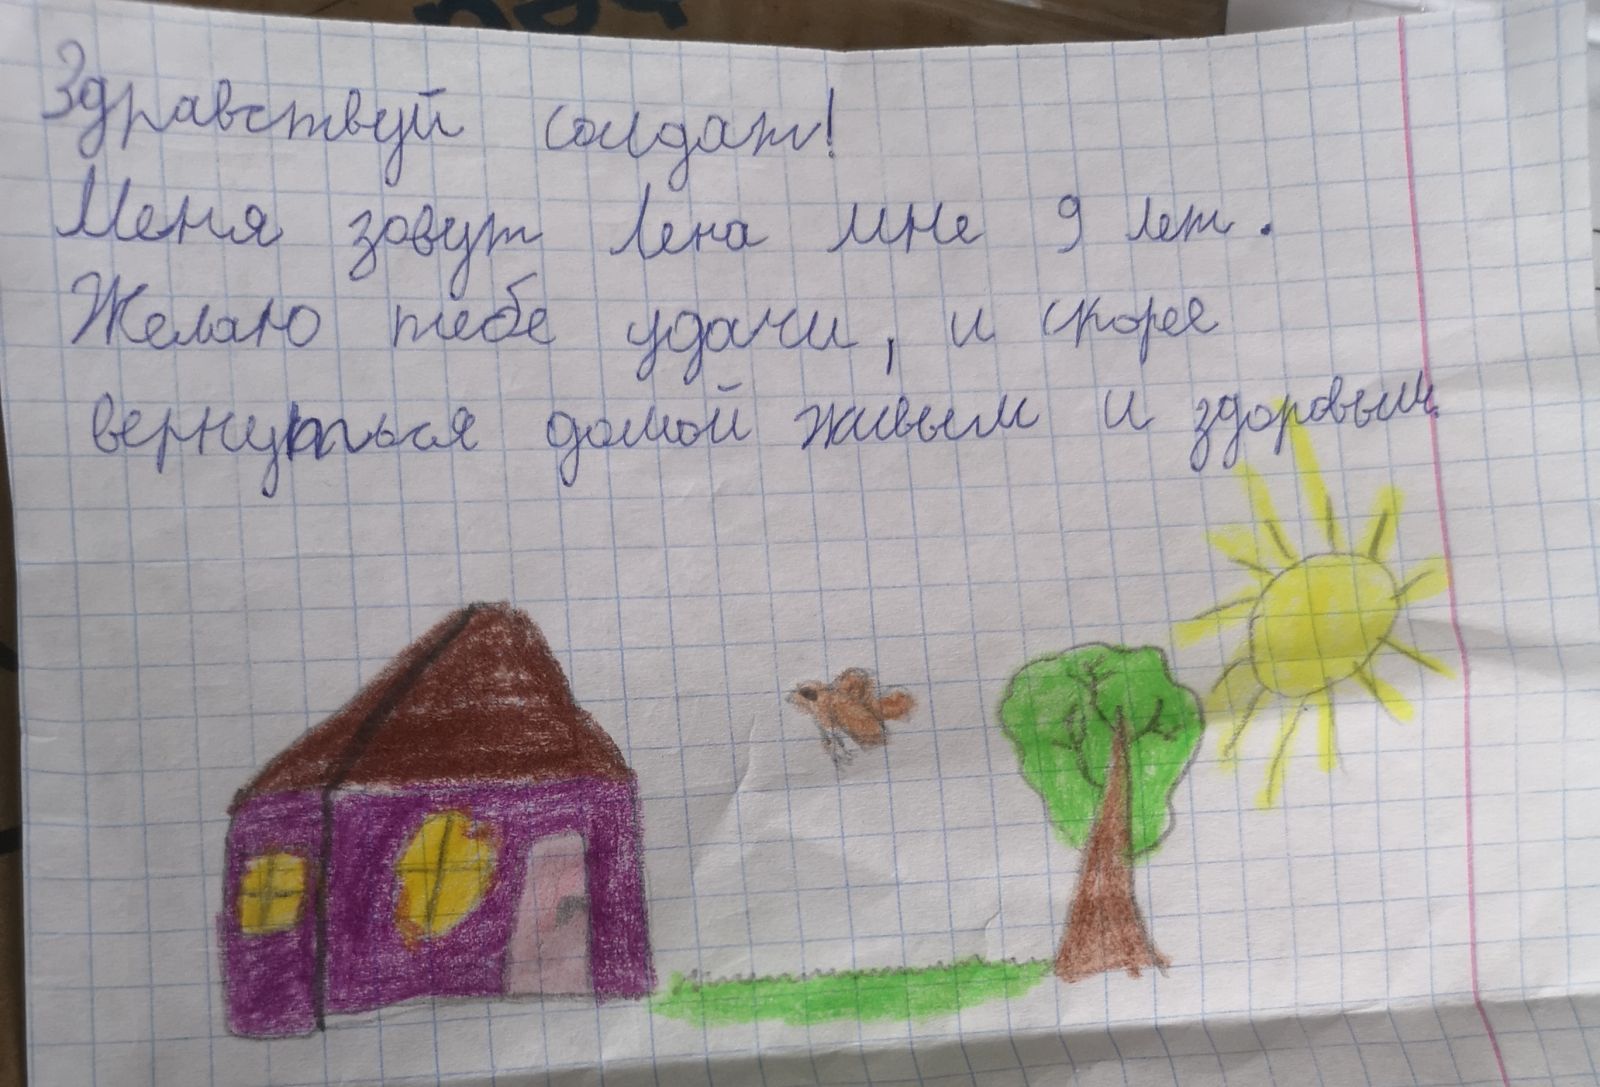 Здравствуй солдат!
Меня зовут Лена мне 9 лет.
Желаю тебе удачи, и скорее
вернуться домой живым и здоровым.